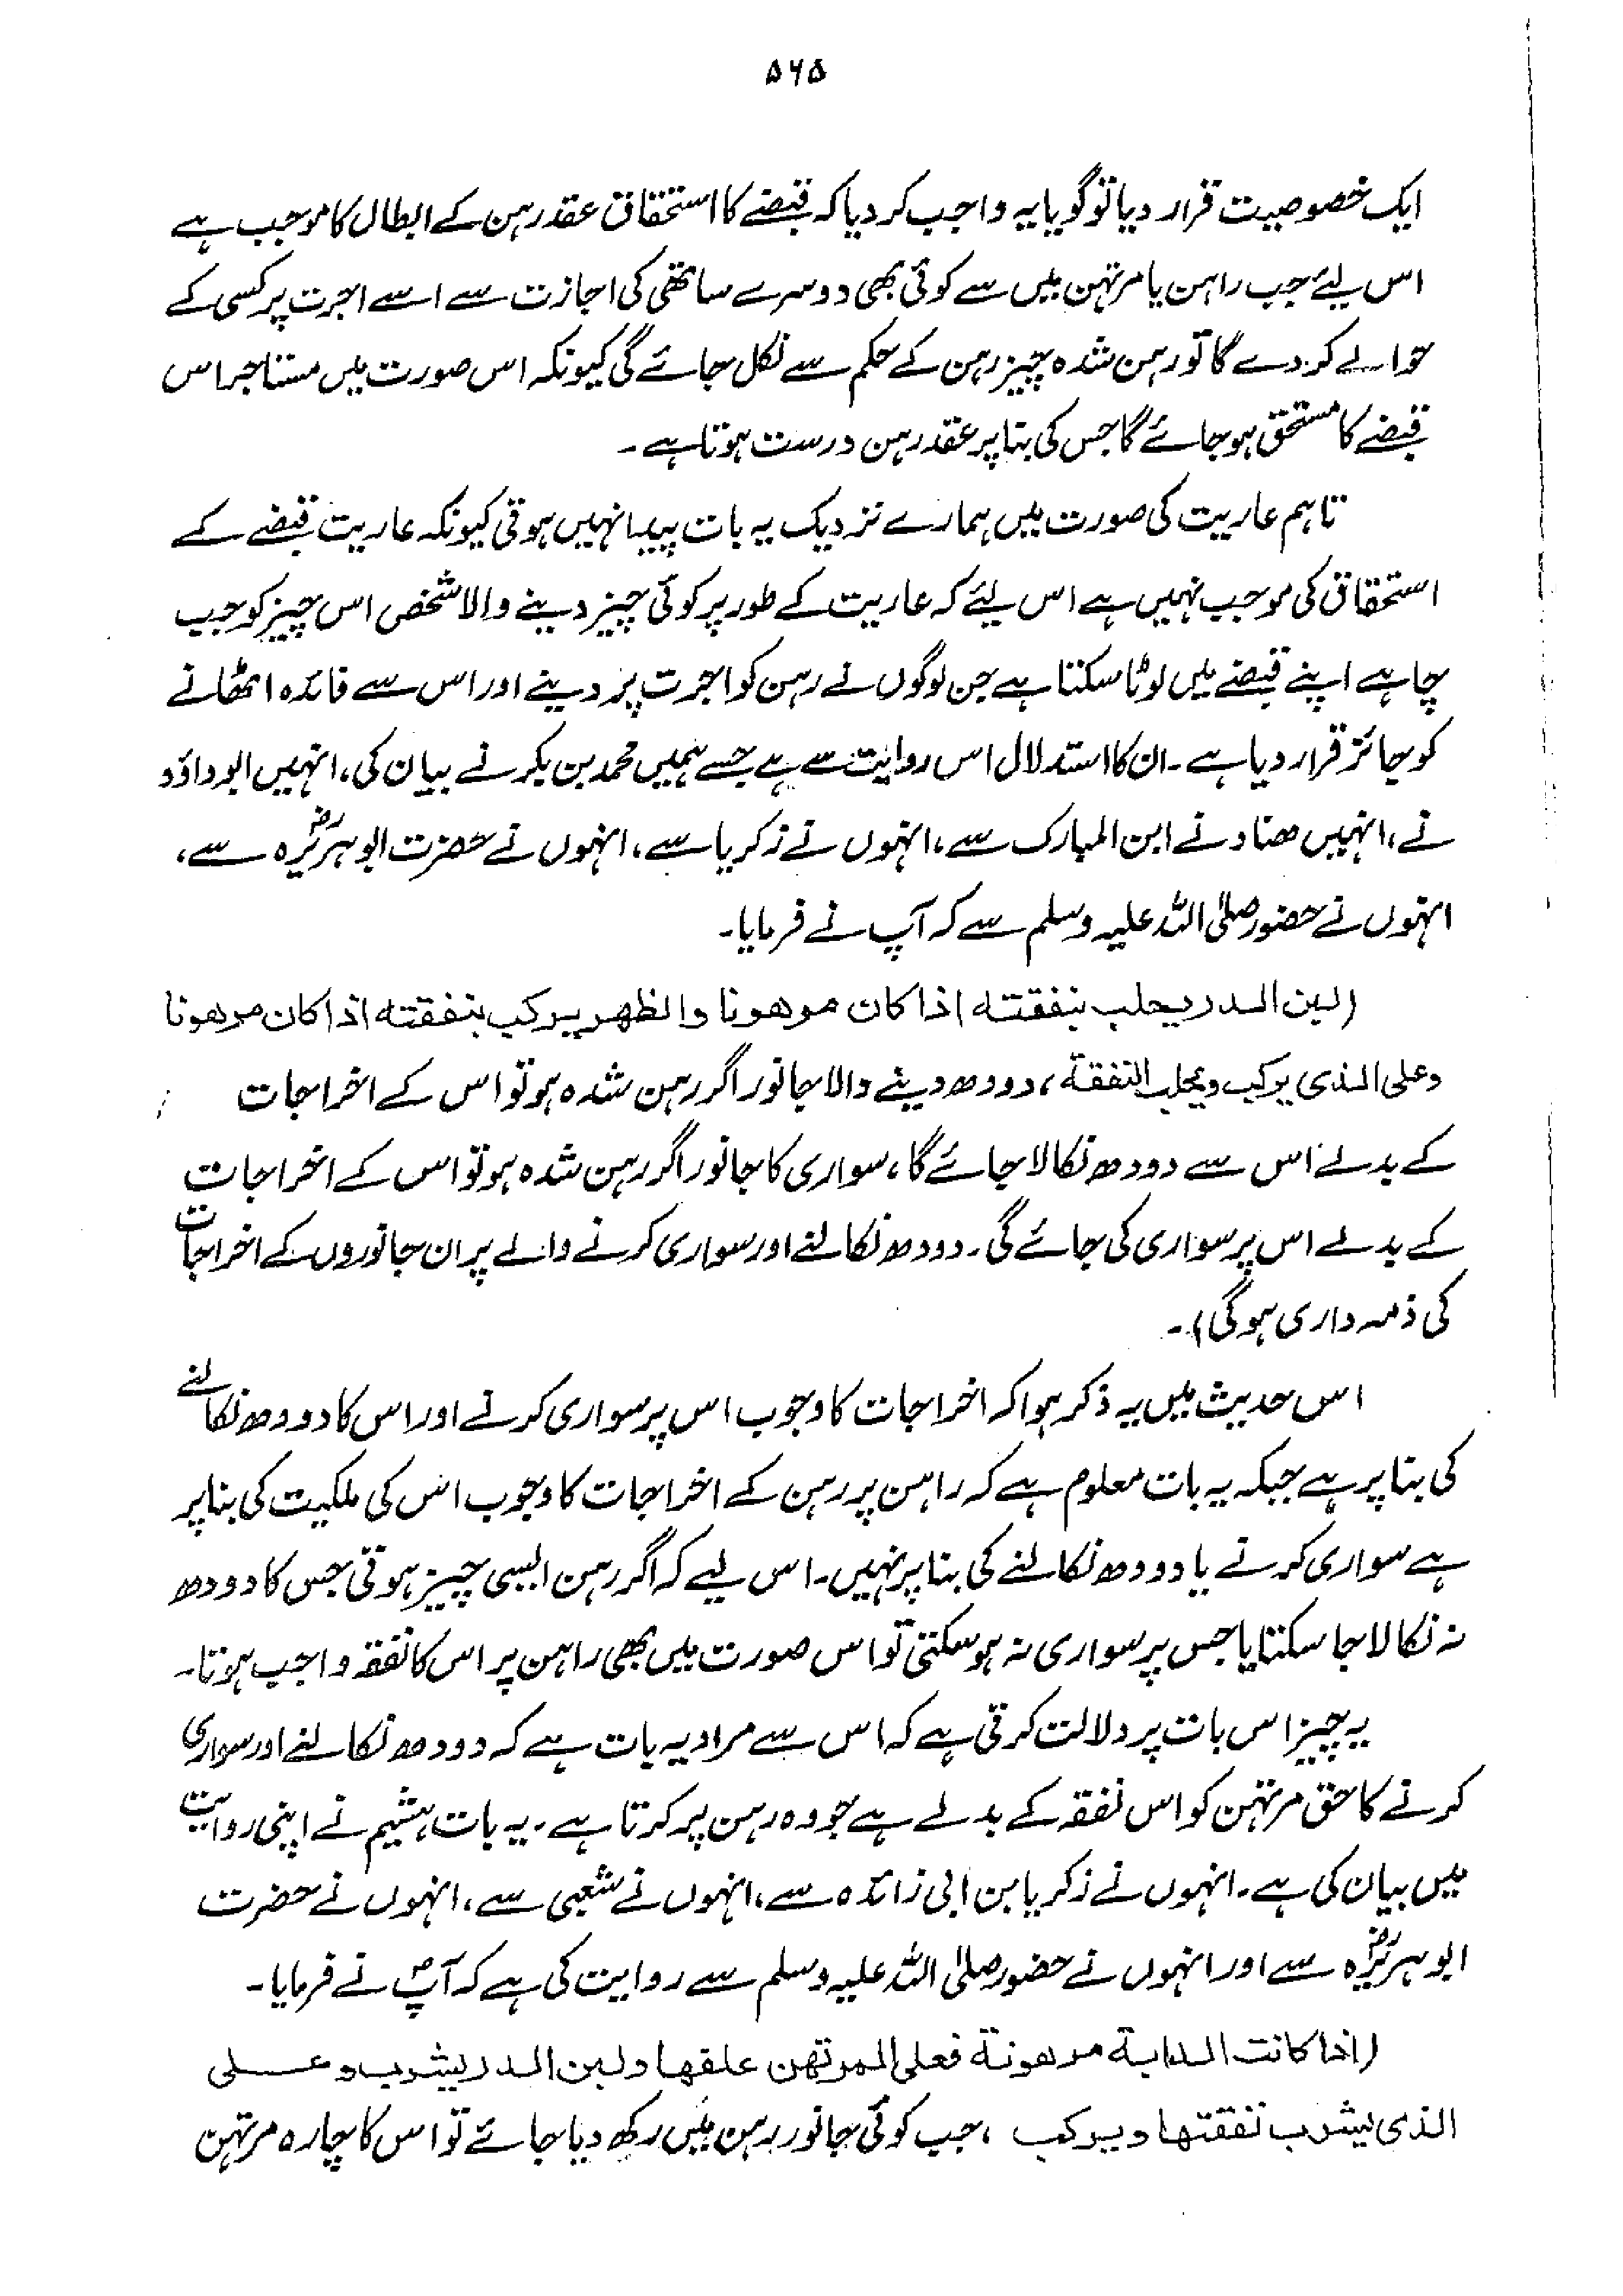 ۵۶۵
ایک خصوصیت قرار دیا تو گویا یہ واجب کر دیا کہ قبضے کا استحقاق عقد رہن کے ابطال کا موجب ہے
اس لیئے جب راہن یا مرتہن میں سے کوئی بھی دوسرے ساتھی کی اجازت سے اسے اجرت پر کسی کے
حوالے کردے گا تو رہن شدہ چیز رہن کے حکم سے نکل جائے گی کیونکہ اس صورت میں مستاجر اس
قبضے کا مستحق ہوجائے گا جس کی بنا پر عقد رہن درست ہوتا ہے۔
تاہم عاریت کی صورت میں ہمارے نزدیک یہ بات پیدا نہیں ہوتی کیونکہ عاریت قبضے کے
استحقاق کی موجب نہیں ہے اس لیئے کہ عاریت کے طور پر کوئی چیز دینے والا شخص اس چیز کو جب
چاہے اپنے قبضے میں لوٹا سکتا ہے جن لوگوں نے رہن کو اجرت پر دینے اور اس سے فائدہ اٹھانے
کو جائز قرار دیا ہے۔ ان کا استدلال اس روایت سے ہے جسے ہمیں محمد بن بکر نے بیان کی، انہیں ابوداؤد
نے، انہیں ھناد نے ابن المبارک سے، انہوں نے زکریا سے، انہوں نے حضرت ابوہریرہؓ سے،
انہوں نے حضور صلی اللہ علیہ وسلم سے کہ آپ نے فرمایا۔
(لبن الدر یحلب بنفقتہ اذا کان موھونا والظھر یرکب بنفقتہ اذا کان مرھونا
وعلی الذی یرکب ویحلب النفقة، دودھ دینے والا جانور اگر رہن شدہ ہو تو اس کے اخراجات
کے بدلے اس سے دودھ نکالا جائے گا، سواری کا جانور اگر رہن شدہ ہو تو اس کے اخراجات
کے بدلے اس پر سواری کی جائے گی۔ دودھ نکالنے اور سواری کرنے والے پر ان جانوروں کے اخراجات
کی ذمہ داری ہوگی)۔
اس حدیث میں یہ ذکر ہوا کہ اخراجات کا وجوب اس پر سواری کرنے اور اس کا دودھ نکالنے
کی بنا پر ہے جبکہ یہ بات معلوم ہے کہ راہن پر رہن کے اخراجات کا وجوب اس کی ملکیت کی بنا پر
ہے سواری کرنے یا دودھ نکالنے کی بنا پر نہیں۔ اس لیے کہ اگر رہن ایسی چیز ہوتی جس کا دودھ
نہ نکالا جا سکتا یا جس پر سواری نہ ہوسکتی تو اس صورت میں بھی راہن پر اس کا نفقہ واجب ہوتا۔
یہ چیز اس بات پر دلالت کرتی ہے کہ اس سے مراد یہ بات ہے کہ دودھ نکالنے اور سواری
کرنے کا حق مرتہن کو اس نفقہ کے بدلے ہے جو وہ رہن پر کرتا ہے۔ یہ بات ہشیم نے اپنی روایت
میں بیان کی ہے۔ انہوں نے زکریا بن ابی زائدہ سے، انہوں نے شعبی سے، انہوں نے حضرت
ابوہریرہؓ سے اور انہوں نے حضور صلی اللہ علیہ وسلم سے روایت کی ہے کہ آپؐ نے فرمایا۔
(اذا کانت الدابة مرھونة فعلی المرتھن علفھا ولبن الدر یشرب وعلی
الذی یشرب نفقتھا ویرکب ، جب کوئی جانور رہن میں رکھ دیا جائے تو اس کا چارہ مرتہن